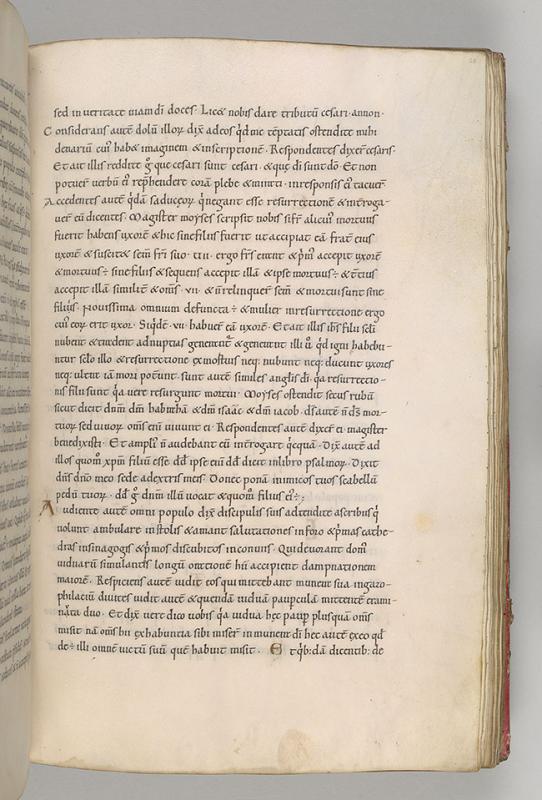 sed in veritate uiam dī doces. Licet nobis dare tributū cesari. annon.
Considerans autē dolū illoꝝ dix̄ adeos qd me tēptatis ostendite mihi
denariū cui᾽ habet imaginem & inscriptionē. Respondentes dixer̄ cesaris.
Et ait illis reddite g̊ que cesari sunt cesari. & quę dī sunt dō. Et non
potuer̄ uerbū ei᾽ rep̄hendere corā plebe & mirati inresponsis ei᾽ tacuer̄
Accedentes autē qdā saduceoꝝ qnegant esse resurrectionē & int̄roga
uer̄ eū dicentes. Magister moyses scripsit nobis si fr̄ alicui᾽ mortuus
fuerit habens uxorē & hic sine filiis fuerit ut accipiat eā frat̄ eius
uxorē & suscitet sem̄ fr̄i suo. vii. ergo fr̄s erant & p̄m᾽ accepit uxorē
& mortuus ÷ sine filiis & sequens accepit illā & ipse mortuus ÷ & t̄cius
accepit illam similit̄ & om̄s. vii. & n̄ relinquer̄ sem̄ & mortui sunt sine
filiis. Nouissima omnium defuncta ÷ & mulier in resurrectione ergo
cui᾽ eoꝝ erit uxor. Siqdē. vii. habuer̄ eā uxorē. Et ait illis ih̄s filii scl̄i
nubent & tradent ad nuptias generant̄ & generant illi ů qdigni habebu
ntur sclo illo & resurrectione ex mortuis neq; nubunt neq; ducunt uxores
neq; ultra iā mori poterunt. sunt autē similes anglis dī. qa resurrectio
nis filii sunt qa uero resurgunt mortui. Moyses ostendit secus rubū
sicut dicit dn̄m dm̄ habrahā & dm̄ isaac & dm̄ iacob. ds̄ autē n̄ ds̄ mor
tuoꝝ sed uiuoꝝ om̄s eni uiuunt ei. Respondentes autē dixer̄ ei. magister
benedixisti. Et ampli᾽ n̄ audebant eū int̄rogare qcquā. Dix̄ autē ad
illos quom̊ xp̄m filiū esse dd̄ ipse eni dd̄ dicit inlibro psalmoꝝ. Dixit
dn̄s dn̄o meo sede adextris meis. Donec ponā inimicos tuos scabellū
pedū tuoꝝ. dd̄ g̊ dn̄m illū uocat & quom̊ filius ei᾽ ÷;
Audiente autē omni populo dix̄ discipulis suis adtendite ascribis q
uolunt ambulare instolis & amant salutationes in foro & p̄mas cathe
dras insinagogis & p̄mos discubitos inconuiuiis. Qui deuorant domos
uiduarū simulantes longū orationē hii accipient dampnationem
maiorē. Respiciens autē uidit eos qui mittebant munera sua ingazo
philaciū diuites uidit autē & quendā uiduā paup̄culā mittentē erami
nuta duo. Et dix̄ uere dico uobis qa uidua hec paup̄ plusquā om̄s
misit nā om̄s hii exhabuntia sibi miser̄ in munera dī hec autē ex eo qd
de÷ illi omnē uictū suū quē habuit misit. Et qb;dā dicentib; de